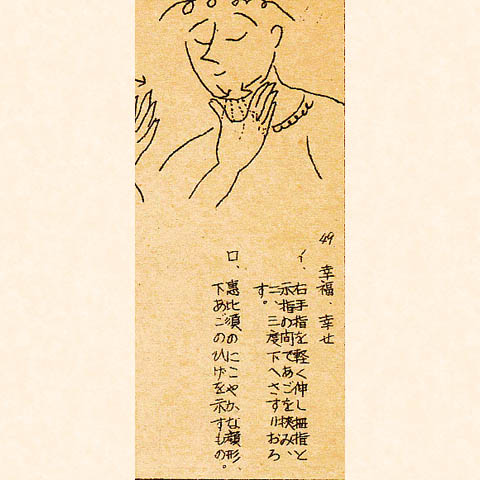 49 幸福．幸せ
イ、
右手指を軽く伸し拇指と
示指の向であごを挟み、
二、三度下へさすりおろ
す。
ロ、
恵比須のにこやかな顔形、
下あごのひげを示すもの。